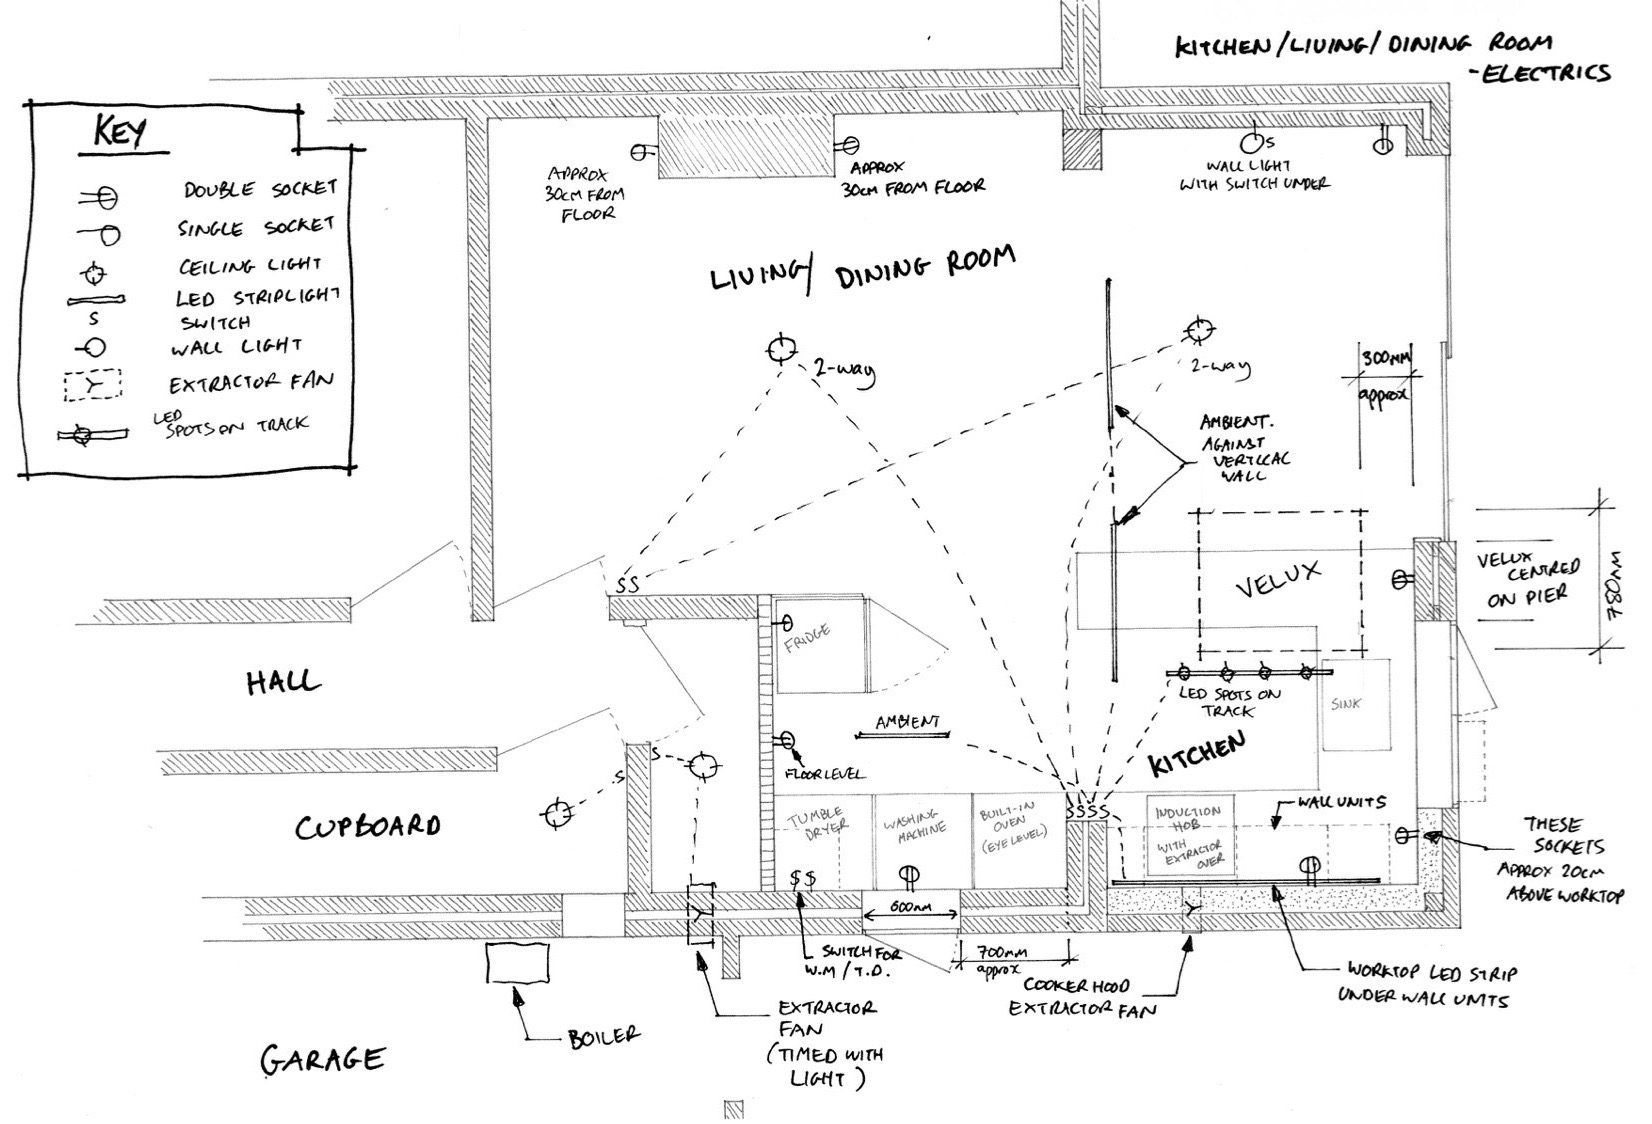 KITCHEN/LIVING/DINING ROOM
-ELECTRICS
KEY
DOUBLE SOCKET
SINGLE SOCKET
CEILING LIGHT
LED STRIPLIGHT
S SWITCH
WALL LIGHT
EXTRACTOR FAN
LED
SPOTS ON TRACK
APPROX
30CM FROM
FLOOR
APPROX
30CM FROM FLOOR
S
WALL LIGHT
WITH SWITCH UNDER
LIVING/ DINING ROOM
2-way
2-way
300MM
approx
AMBIENT.
AGAINST
VERTICAL
WALL
VELUX
VELUX
CENTRED
ON PIER
780MM
SS
FRIDGE
HALL
AMBIENT
LED SPOTS ON
TRACK
SINK
KITCHEN
FLOOR LEVEL
S
S
CUPBOARD
TUMBLE
DRYER
WASHING
MACHINE
BUILT-IN
OVEN
(EYE LEVEL)
SSSS
INDUCTION
HOB
WITH
EXTRACTOR
OVER
WALL UNITS
THESE
SOCKETS
APPROX 20CM
ABOVE WORKTOP
SS
600MM
SWITCH FOR
W.M / T.D.
700MM
approx
COOKER HOOD
EXTRACTOR FAN
WORKTOP LED STRIP
UNDER WALL UNITS
BOILER
EXTRACTOR
FAN
(TIMED WITH
LIGHT)
GARAGE